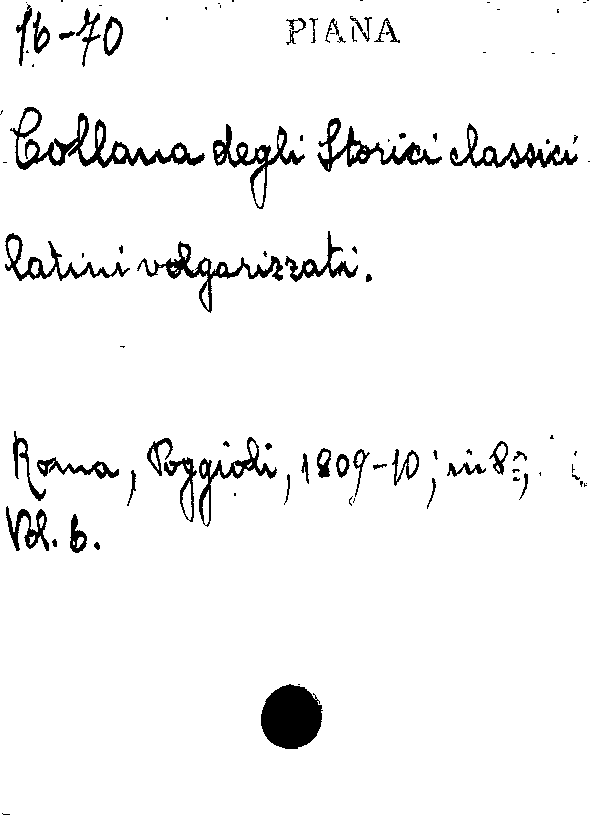 16-70 PIANA
Collana degli Storici classici
latini volgarizzati.
Roma, Poggioli, 1809-10; in 8º;
Vol. 6.